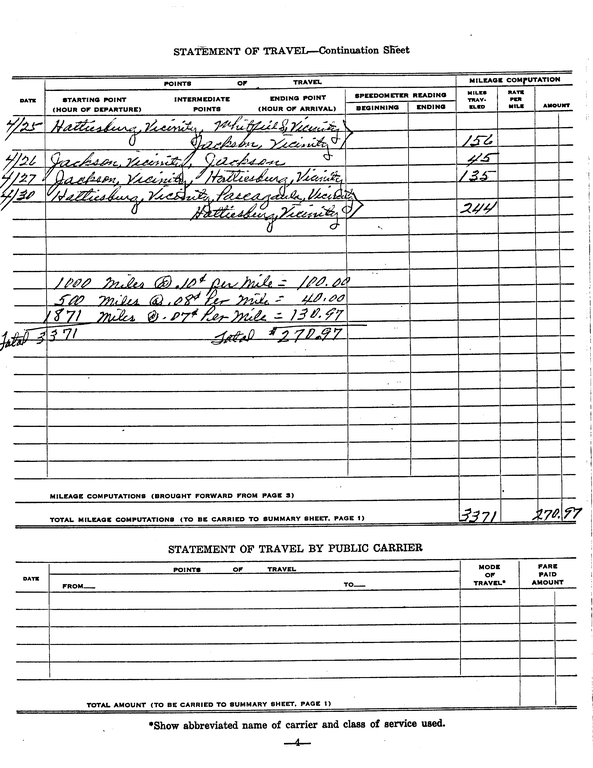 STATEMENT OF TRAVEL—Continuation Sheet
POINTS OF TRAVEL MILEAGE COMPUTATION
DATE STARTING POINT (HOUR OF DEPARTURE) INTERMEDIATE POINTS ENDING POINT (HOUR OF ARRIVAL) SPEEDOMETER READING BEGINNING ENDING MILES TRAV-ELED RATE PER MILE AMOUNT
4/25 Hattiesburg, Vicinity, Whitfield, Vicinity
Jackson, Vicinity 156
4/26 Jackson, Vicinity, Jackson 45
4/27 Jackson, Vicinity, Hattiesburg, Vicinity 135
4/30 Hattiesburg, Vicinity, Pascagoula, Vicinity
Hattiesburg, Vicinity 244
1000 Miles @ .10¢ per Mile = 100.00
500 Miles @ .08¢ Per Mile = 40.00
1871 Miles @ .07¢ Per Mile = 130.97
Total 3371 Total $270.97
MILEAGE COMPUTATIONS (BROUGHT FORWARD FROM PAGE 3)
TOTAL MILEAGE COMPUTATIONS (TO BE CARRIED TO SUMMARY SHEET, PAGE 1) 3371 270.97
STATEMENT OF TRAVEL BY PUBLIC CARRIER
DATE POINTS OF TRAVEL MODE OF TRAVEL* FARE PAID AMOUNT
FROM— TO—
TOTAL AMOUNT (TO BE CARRIED TO SUMMARY SHEET, PAGE 1)
*Show abbreviated name of carrier and class of service used.
—4—